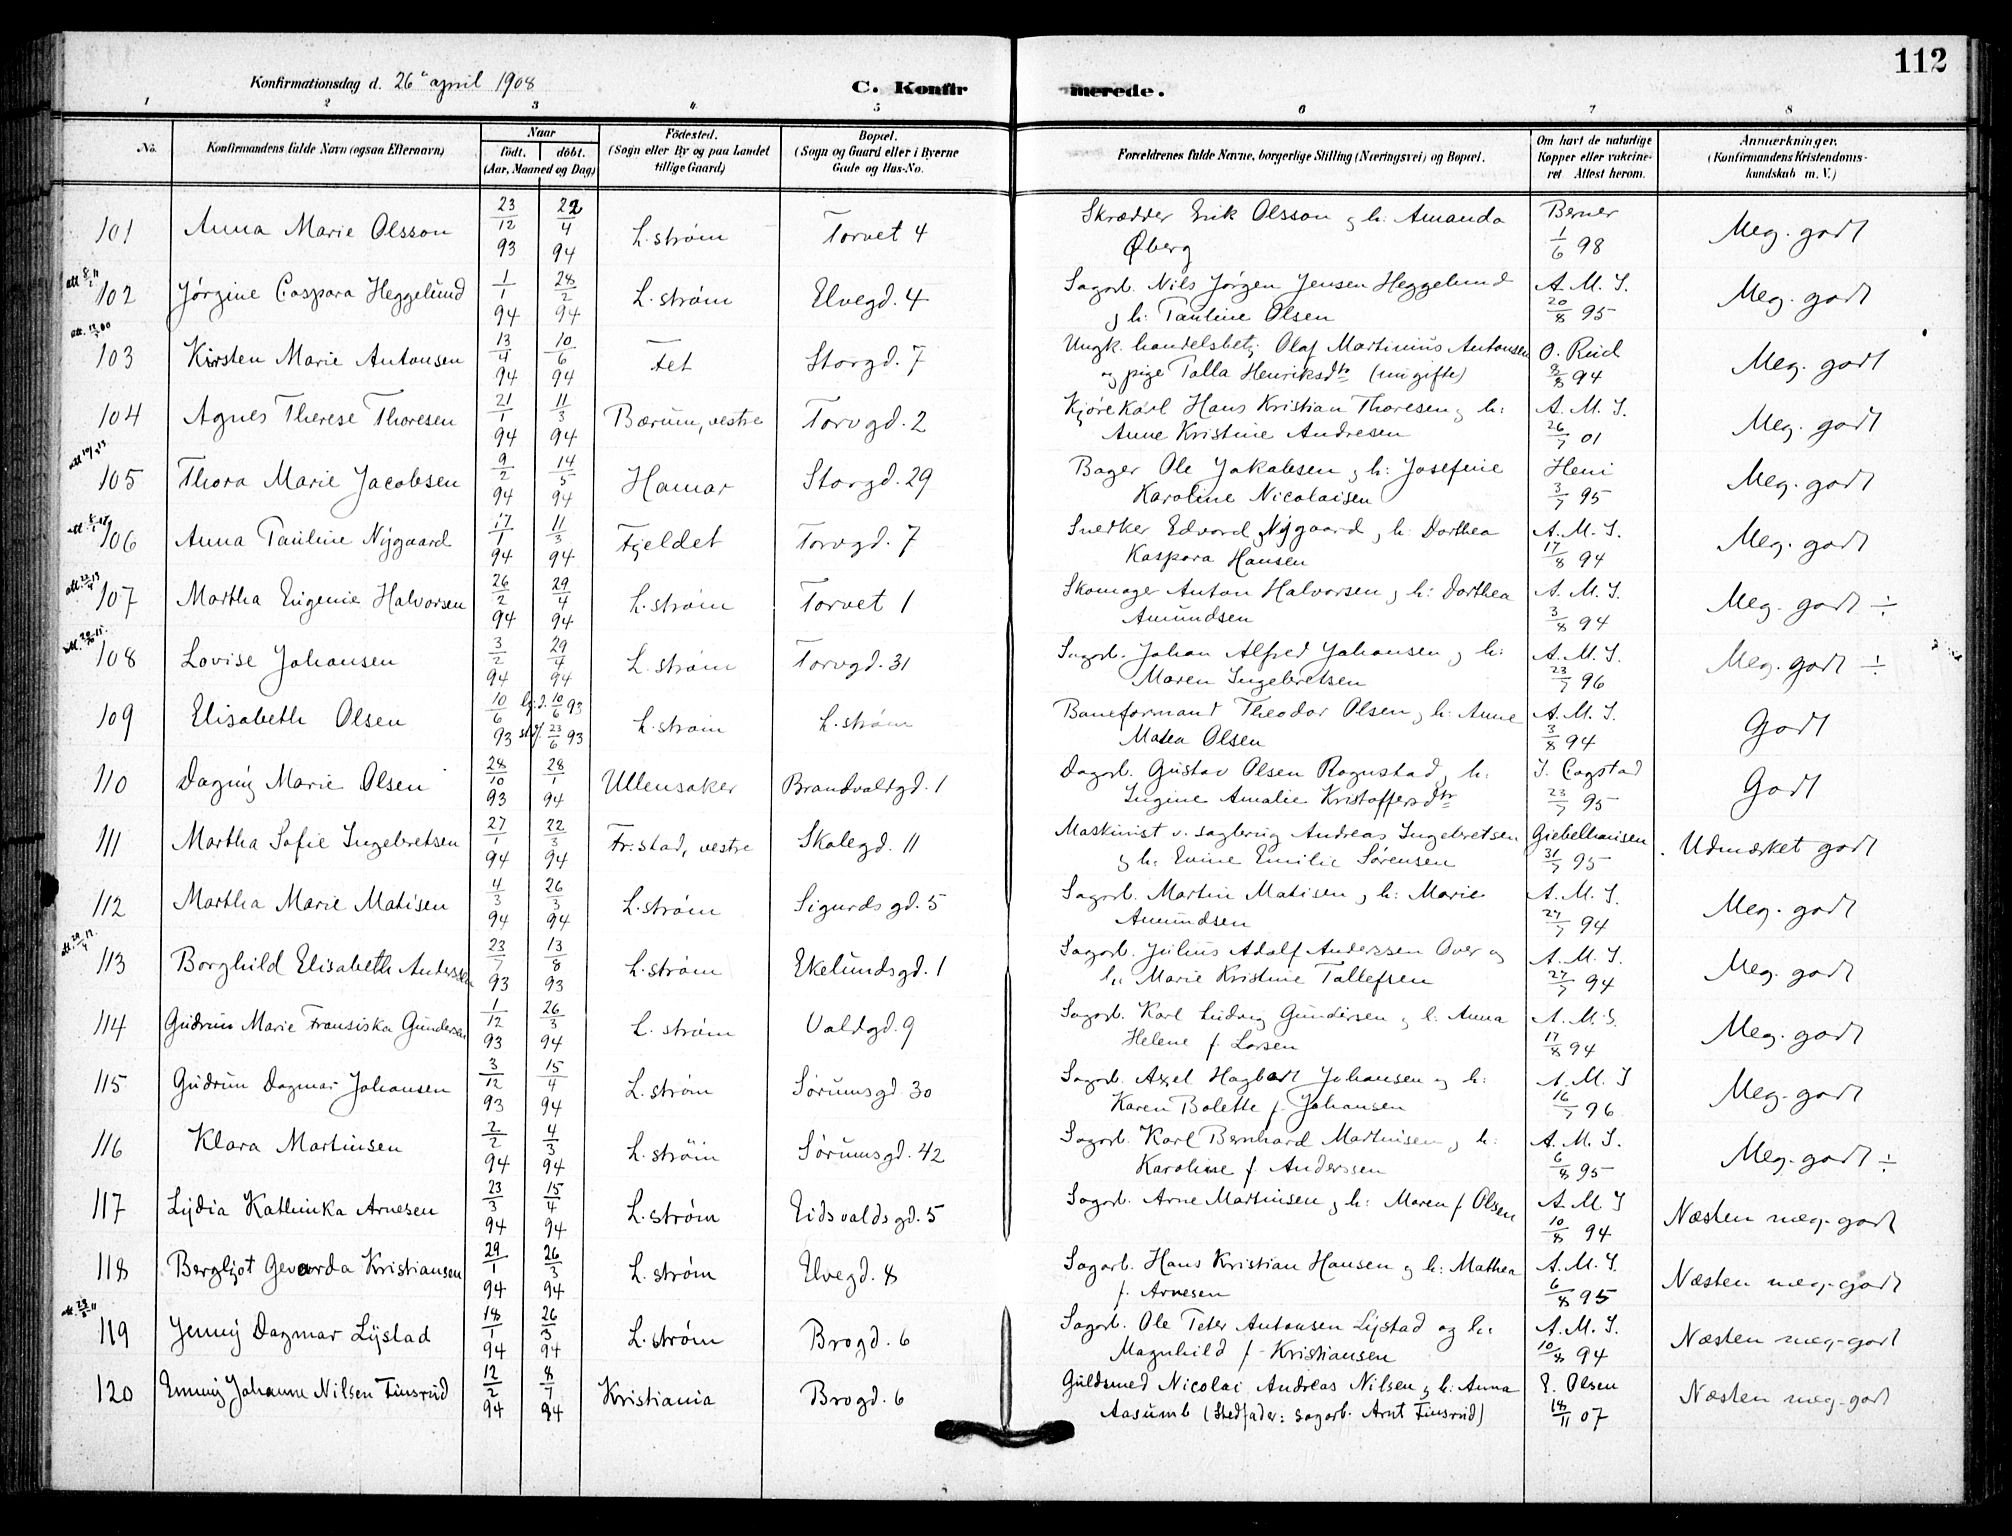 112
Konfirmationsdag d. 26de april 1908
C. Konfirmerede.
1 2 3 4 5 6 7 8
No. | Konfirmandens fulde Navn (ogsaa Efternavn) | Naar født. | døbt. (Aar, Maaned og Dag) | Fødested. (Sogn eller By og paa Landet tillige Gaard) | Bopæl. (Sogn og Gaard eller i Byerne Gade og Hus-No. | Forældrenes fulde Navne, borgerlige Stilling (Næringsvei) og Bopæl. | Om havt de naturlige Kopper eller vakcineret. Attest herom. | Anmærkninger. (Konfirmandens Kristendomskundskab m. V.)
101 Anna Marie Olsson 23/12 93 22/4 94 L.strøm Torvet 4 Skrædder Erik Olsson og h: Amanda Berner Meg. godt
Øberg 1/6 98
att 8/2 11
102 Jørgine Caspara Heggelund 1/1 94 28/2 94 L.strøm Elvegd. 4 Sagarb. Nils Jørgen Jensen Heggelund A. M. S. Meg. godt
og h: Pauline Olsen 20/8 95
103 Kirsten Marie Antonsen 13/4 94 10/6 94 Fet Storgd. 7 Ungk. handelsbetj. Olaf Martinius Antonsen O. Rud Meg. godt
og pige Talla Henriksdtr (ungifte) 9/8 94
104 Agnes Therese Thoresen 21/1 94 11/3 94 Bærum, vestre Torvgd. 2 Kjørekarl Hans Kristian Thoresen og h: A. M. S. Meg. godt
Anne Kristine Andresen 26/7 01
105 Thora Marie Jacobsen 9/2 94 14/5 94 Hamar Storgd. 29 Bager Ole Jakobsen og h: Josefine Heni Meg. godt
Karoline Nicolaisen 3/7 95
106 Anna Pauline Nygaard 17/1 94 11/3 94 Fjeldet Torvgd. 7 Snedker Edvard Nygaard og h: Dorthea A. M. S. Meg. godt
Kaspara Hansen 17/8 94
att. 22/4 13
107 Martha Eugenie Halvorsen 26/2 94 29/4 94 L.strøm Torvet 1 Skomager Anton Halvorsen og h: Dorthea A. M. S. Meg. godt ÷
Amundsen 3/8 94
108 Lovise Johansen 3/2 94 29/4 94 L.strøm Torvgd. 31 Sagarb. Johan Alfred Johansen og h: A. M. S. Meg. godt ÷
Maren Ingebretsen 23/7 96
109 Elisabeth Olsen 10/6 93 hj.d. 10/6 93 stadf. 23/6 93 L.strøm L.strøm Baneformand Theodor Olsen og h: Anne A. M. S. Godt
Matea Olsen 3/8 94
110 Dagny Marie Olsen 28/10 93 28/1 94 Ullensaker Brandvaldgd. 1 Dagarb. Gustav Olsen Rognstad og h: Godt
Ingine Amalie Kristoffersdtr 23/7 95
111 Martha Sofie Ingebretsen 27/1 94 22/3 94 Fr.stad, vestre Skolegd. 11 Maskinist v. sagbrug Andreas Ingebretsen Giebelhausen Udmærket godt
og h: Evine Emilie Sørensen 31/7 95
112 Martha Marie Matisen 4/3 94 26/3 94 L.strøm Sigurdsgd. 5 Sagarb. Martin Matisen og h: Marie A. M. S. Meg. godt
Amundsen 27/7 94
113 Borghild Elisabeth Anderssen 23/7 93 13/8 93 L.strøm Ekelundsgd. 1 Sagarb. Julius Adolf Anderssen Over og A. M. S. Meg. godt
h: Marie Kristine Tollefsen 27/7 94
114 Gudrun Marie Fransiska Gundersen 1/12 93 26/3 94 L.strøm Voldgd. 9 Sagarb. Karl Ludvig Gundersen og h. Anna A. M. S. Meg. godt
Helene f. Larsen 17/8 94
115 Gudrun Dagmar Johansen 3/12 93 15/4 94 L.strøm Sørumsgd. 30 Sagarb. Axel Hagbart Johansen og h: A. M. S Meg. godt
Karen Bolette f. Johansen 16/7 96
116 Klara Martinsen 2/2 94 4/3 94 L.strøm Sørumsgd. 42 Sagarb. Karl Bernhard Martinsen og h: A. M. S. Meg. godt ÷
Karoline f. Anderssen 6/8 95
117 Lydia Kathinka Arnesen 23/3 94 15/4 94 L.strøm Eidsvoldsgd. 5 Sagarb. Arne Martinsen og h: Maren f. Olsen A. M. S Næsten meg. godt
10/8 94
118 Bergljot Gevarda Kristiansen 29/1 94 26/3 94 L.strøm Elvegd. 8 Sagarb. Hans Kristian Hansen og h: Mathea A. M. S. Næsten meg. godt
f. Arnesen 6/8 95
119 Jenny Dagmar Lystad 18/1 94 26/3 94 L.strøm Brogd. 6 Sagarb. Ole Peter Antonsen Lystad og h: A. M. S. Næsten meg. godt
Magnhild f. Kristiansen 10/8 94
120 Emmy Johanne Nilsen Finsrud 12/2 94 8/7 94 Kristiania Brogd. 6 Guldsmed Nicolai Andreas Nilsen og h: Anna E. Olsen Næsten meg. godt
Aasumb (Stedfader: sagarb. Arnt Finsrud) 18/11 07